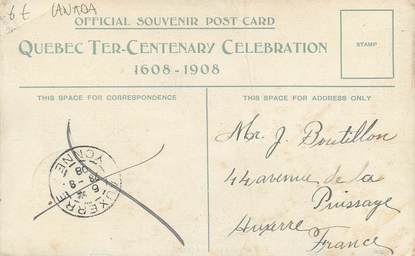 6 €  CANADA
OFFICIAL SOUVENIR POST CARD
QUEBEC TER-CENTENARY CELEBRATION
1608-1908
STAMP
THIS SPACE FOR CORRESPONDENCE
THIS SPACE FOR ADDRESS ONLY
Mr. J. Boutillon
44 avenue de la
Puissaye
Auxerre
France
AUXERRE
YONNE
08